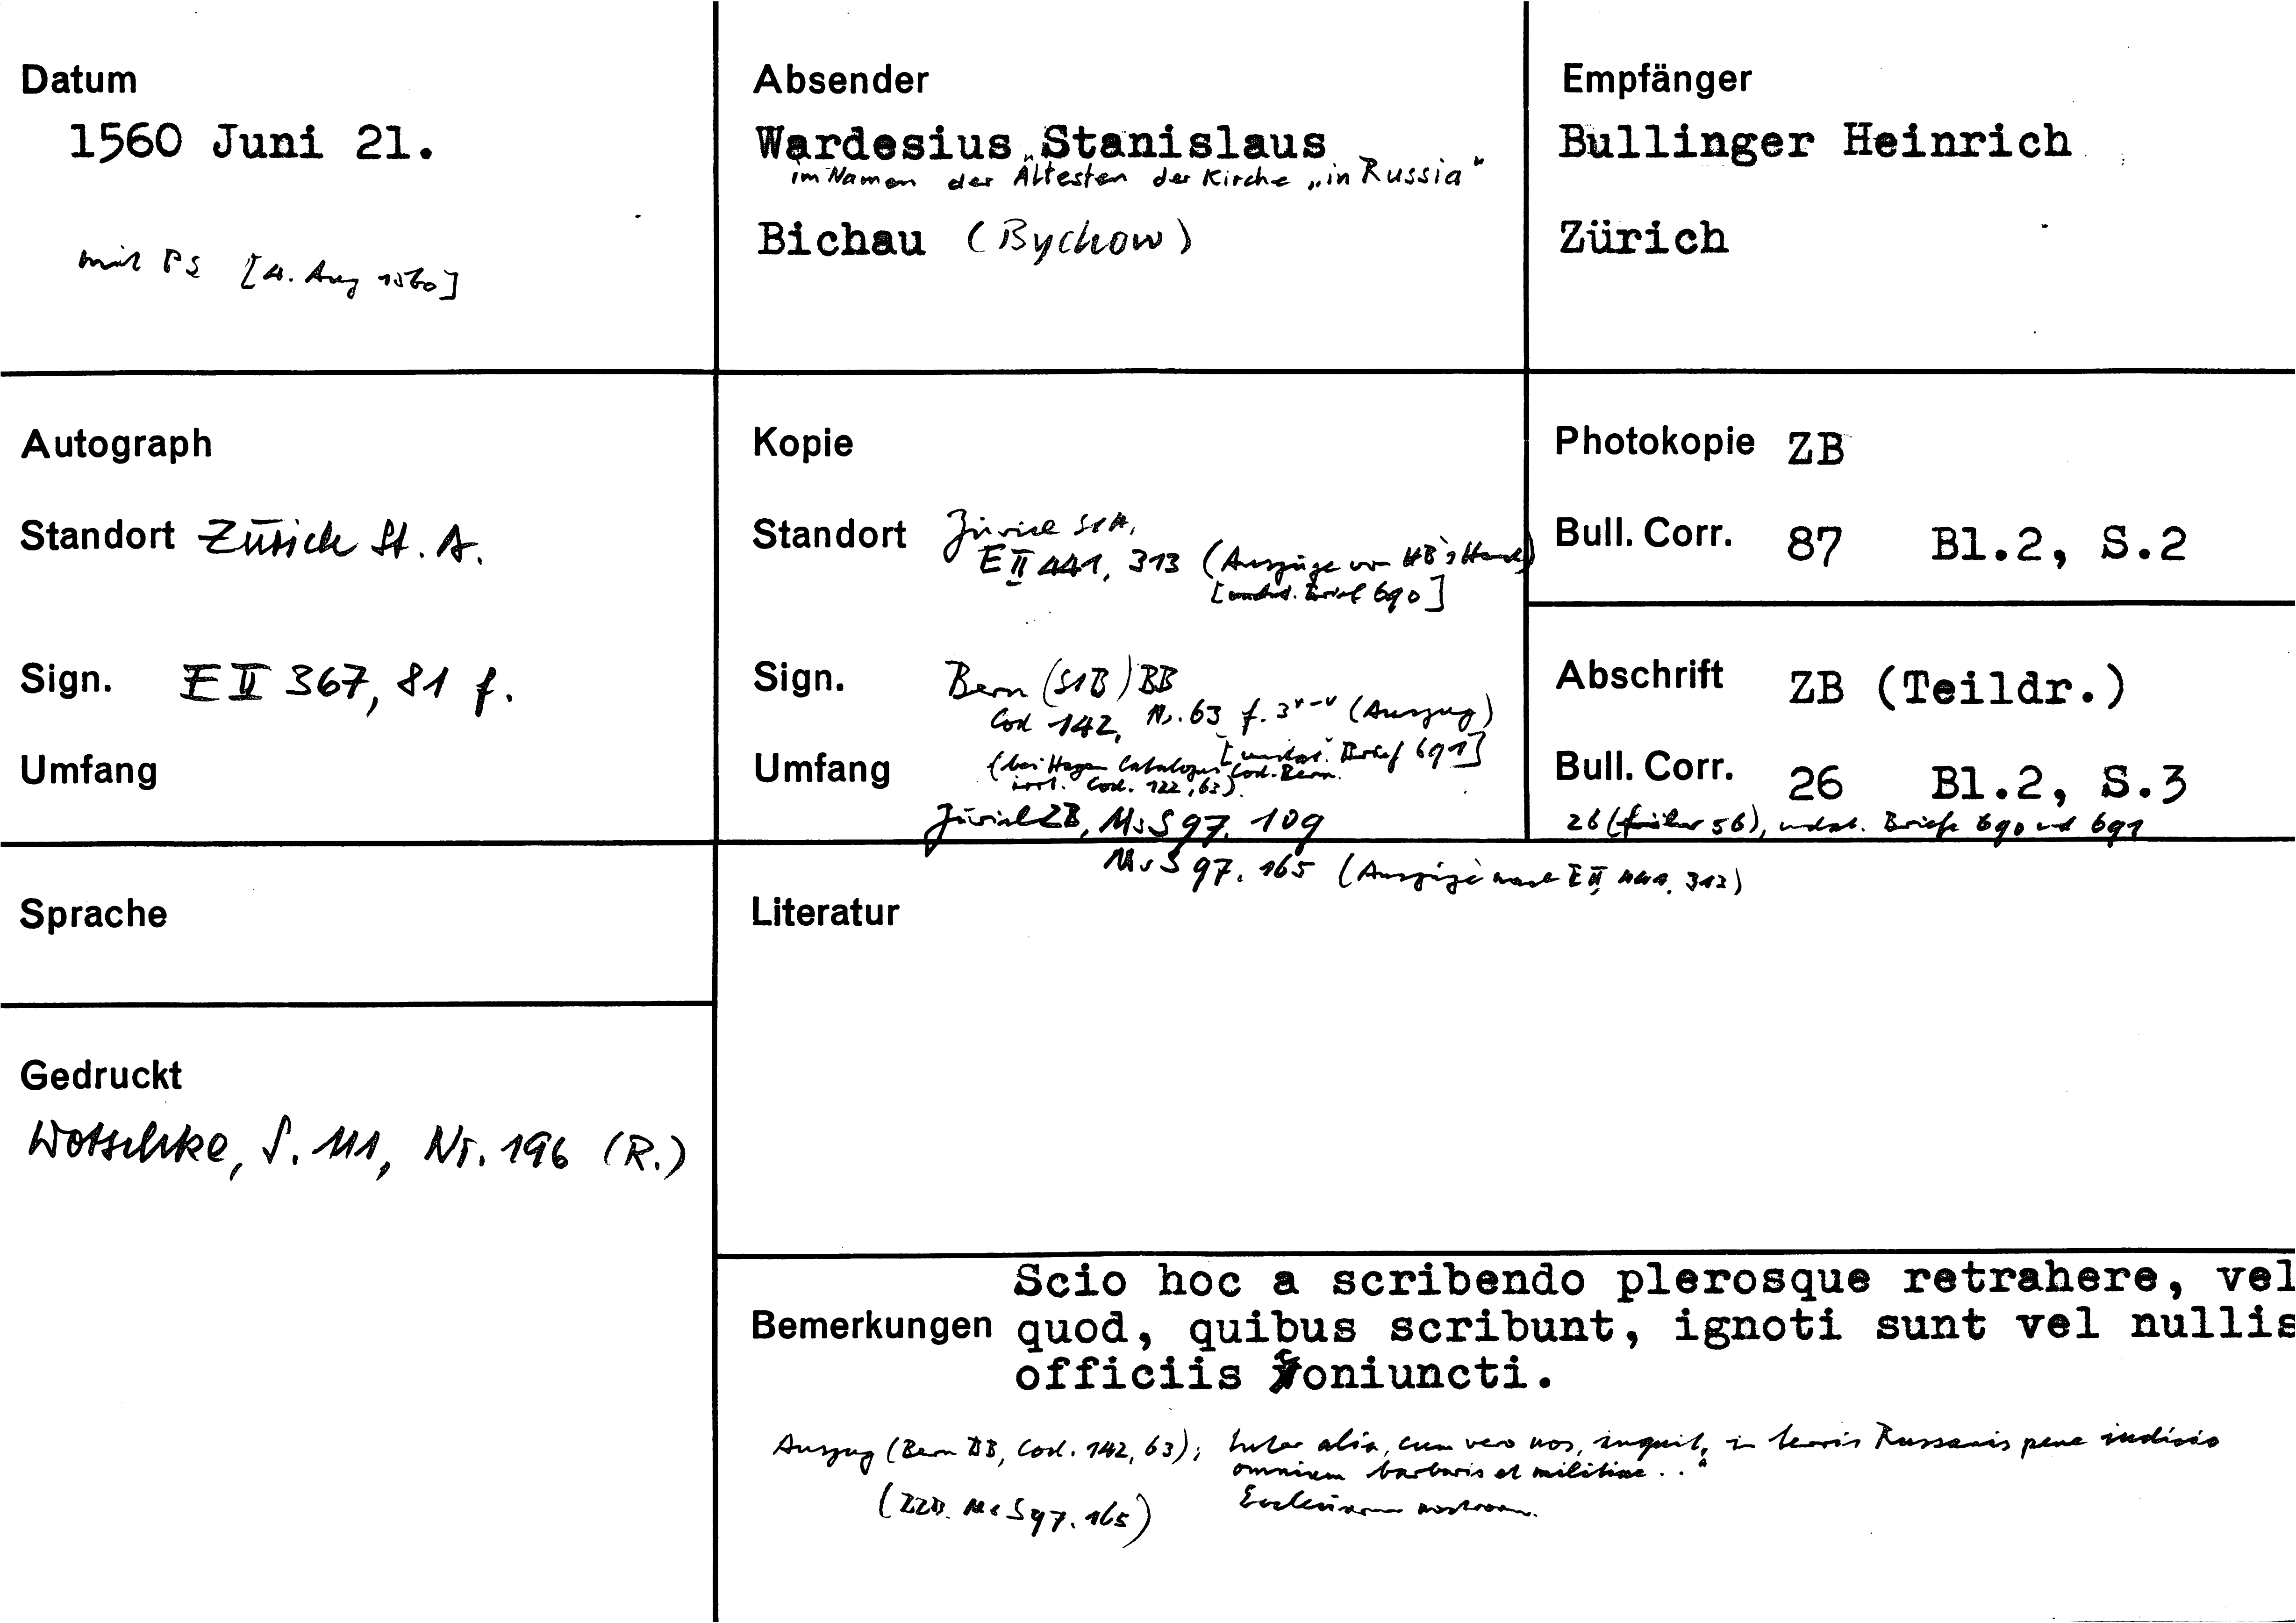 Datum
1560 Juni 21.
mit PS [4. Aug 1560]
Absender
Wardesius Stanislaus
im Namen der Ältesten der Kirche „in Russia"
Bichau (Bychow)
Empfänger
Bullinger Heinrich
Zürich
Autograph
Standort Zürich St. A.
Sign. E II 367, 81 f.
Umfang
Kopie
Standort Zürich StA,
E II 441, 313 (Auszüge von HB's Hand)
[undat. Brief 690]
Sign. Bern (StB) BB
Cod 142, Nr. 63 f. 3r-v (Auszug)
[undat. Brief 691]
Umfang (bei Hagen Catalogus Cod. Bern.
irrt. Cod. 122, 63)
Zürich ZB, Ms S 97. 109
Ms S 97. 165 (Auszüge nach E II 441, 313)
Photokopie ZB
Bull. Corr. 87 Bl.2, S.2
Abschrift ZB (Teildr.)
Bull. Corr. 26 Bl.2, S.3
26 (früher 56), undat. Briefe 690 und 691
Sprache
Literatur
Gedruckt
Wotschke, S. 111, Nr. 196 (R.)
Scio hoc a scribendo plerosque retrahere, vel
Bemerkungen quod, quibus scribunt, ignoti sunt vel nullis
officiis coniuncti.
Auszug (Bern BB, Cod. 142, 63); Inter alia, cum vero nos, inquit, in terris Russanis pene
omnium barbaris et militiae .."
(ZZB. Ms S 97. 165)